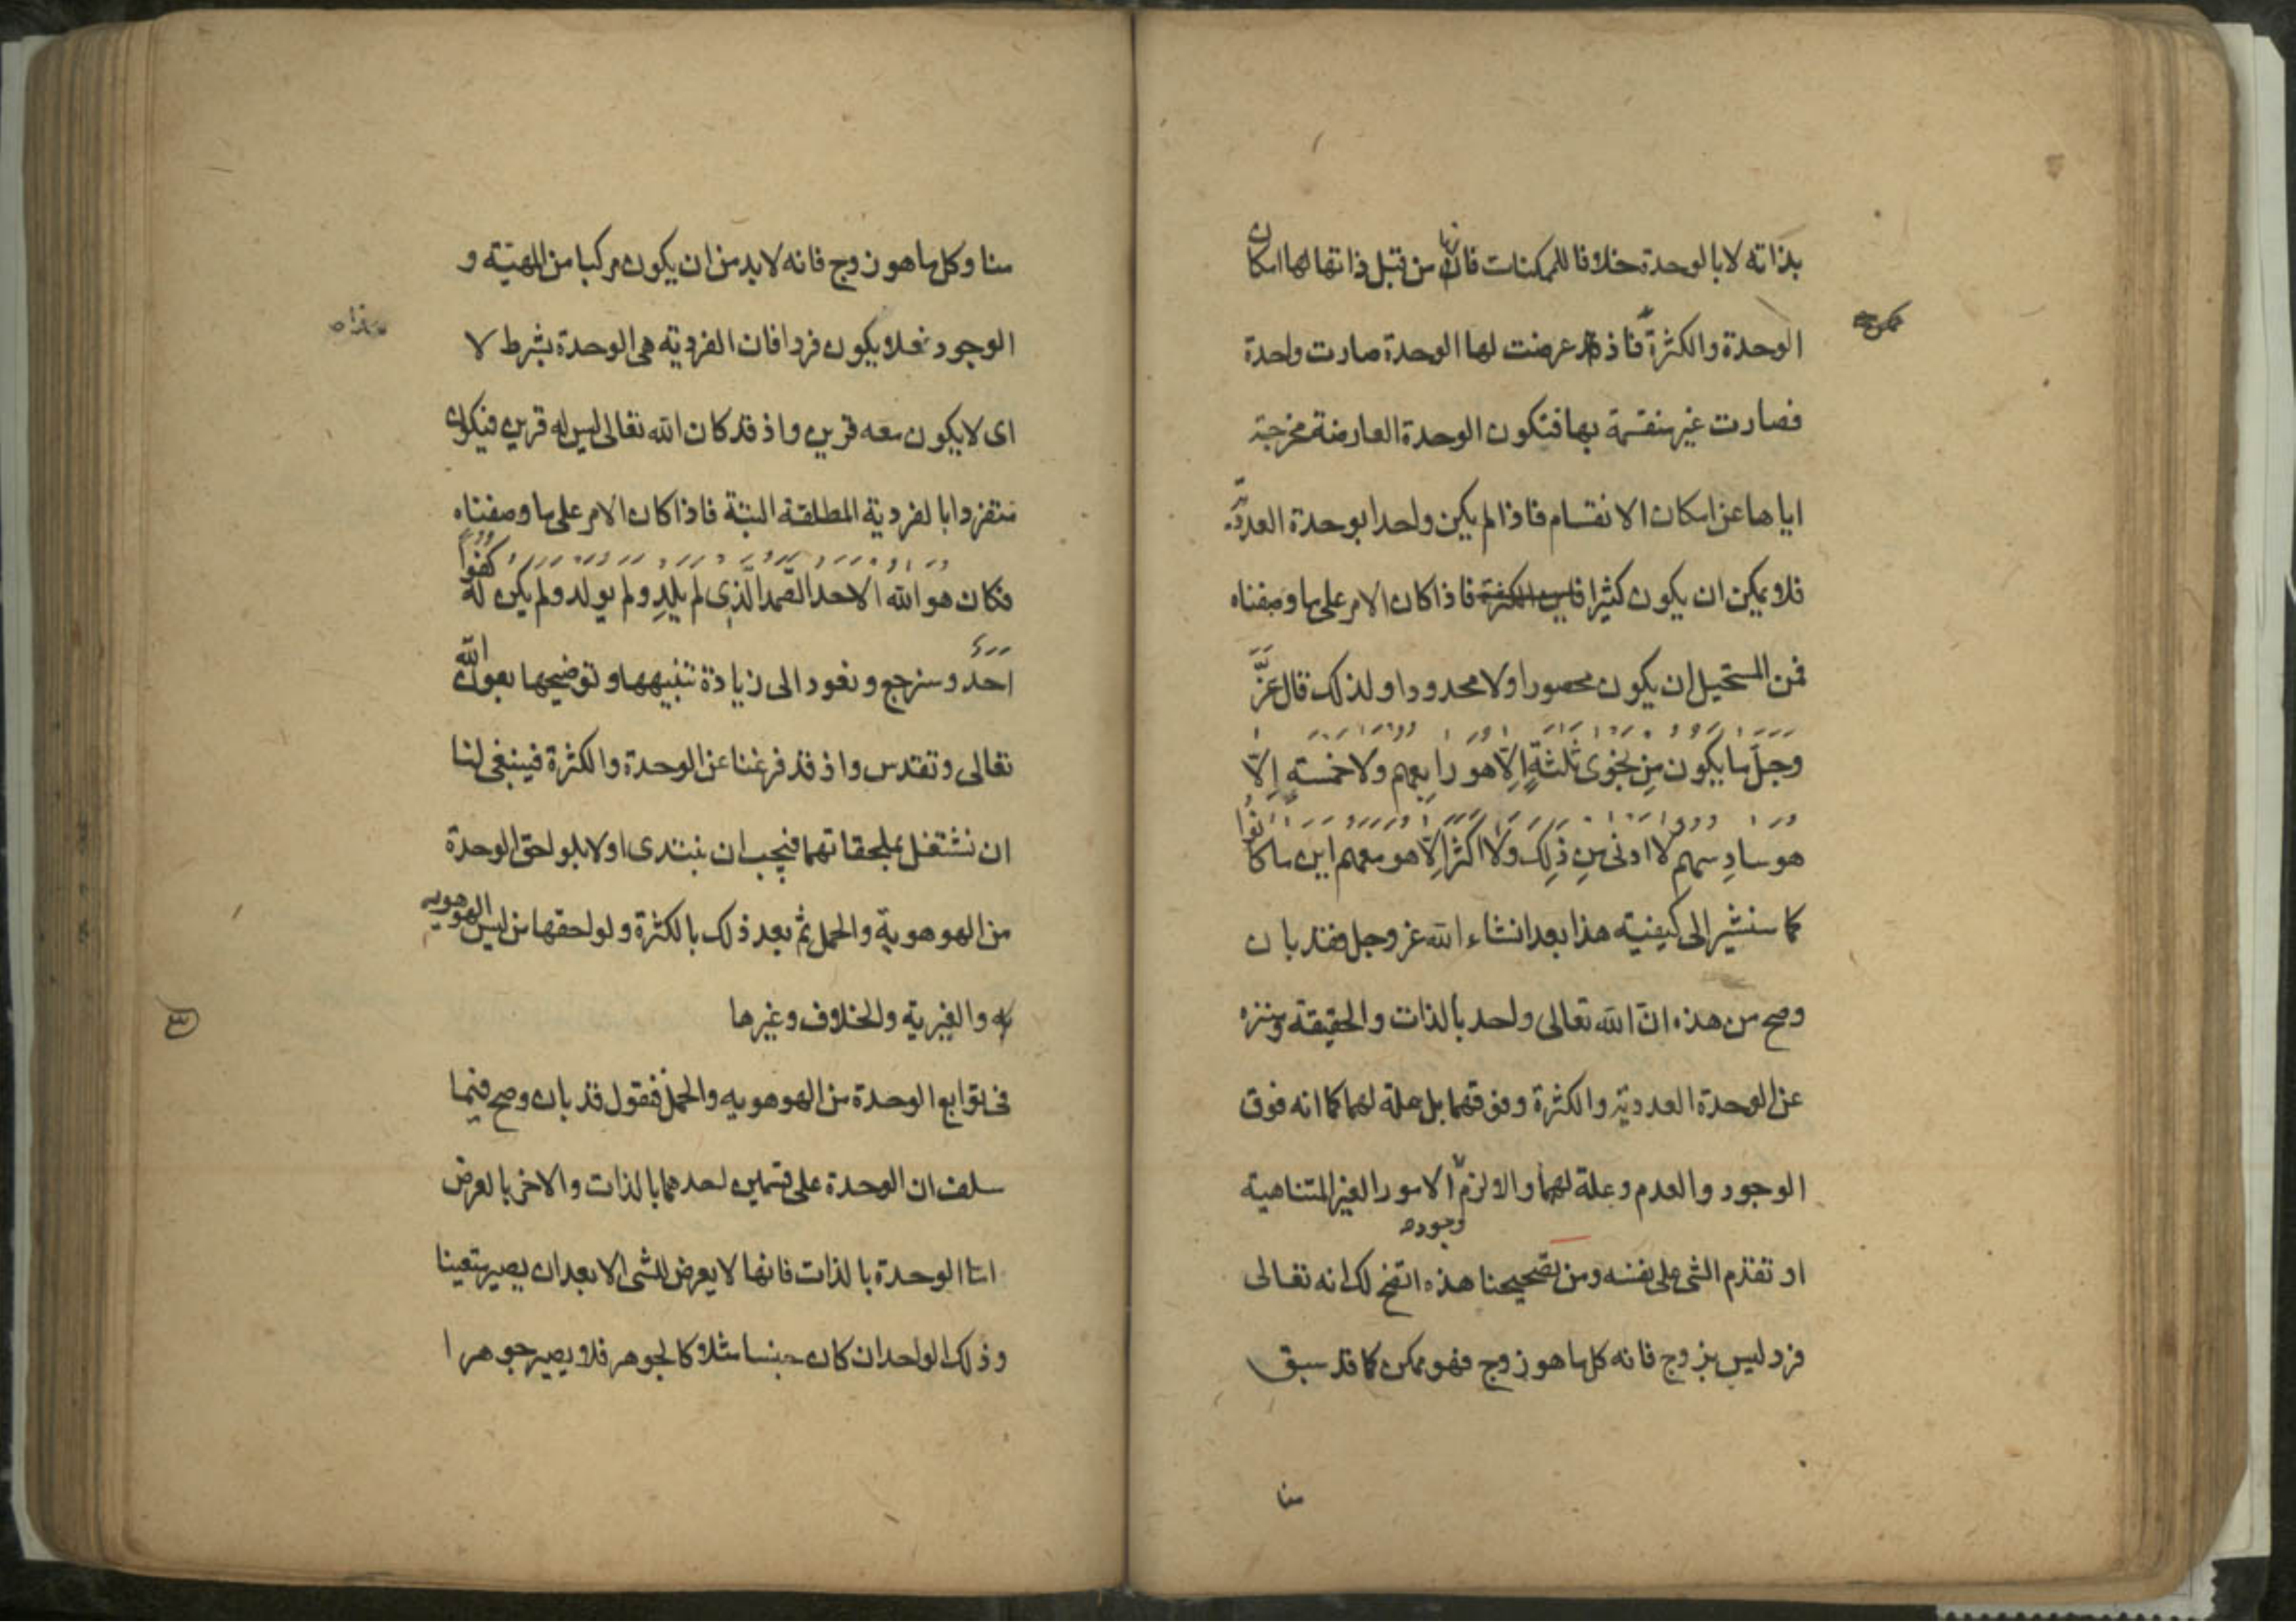 بذاته لا بالوحدة خلافا للممكنات فانها من قبل ذاتها لها امكان
الوحدة والكثرة فاذ قد عرضت لها الوحدة صارت واحدة
ممكن
فصارت غير منقسمة بها فتكون الوحدة العارضة مخرجة
اياها عن امكان الانقسام فاذا لم يكن واحدا بوحدة العددية
فلا يمكن ان يكون كثيرا فاذا كان الامر على ما وصفناه
فمن المستحيل ان يكون محصورا ولا محدودا ولذلك قال عَزَّ
وجلّ ما يكون مِن نجوى ثَلٰثةٍ اِلّا هو رابِعهم ولا خمسةٍ اِلّا
هو سادِسهم لا ادنى مِن ذلِك ولا اكثر اِلّا هو معهم اين ما كانُوا
كما سنشير الى كيفيته هذا بعد انشاء الله عز وجل فقد بان
وصح من هذه انّ الله تعالى واحد بالذات والحقيقة ومنزه
عن الوحدة العددية والكثرة وفوقهما بل علة لهما كما انه فوق
الوجود والعدم وعلة لهما والا لزم الامور الغير المتناهية
وجوده
او تقدم الشى على نفسه ومن تصحيحنا هذه اتضح لك انه تعالى
فرد ليس بزوج فانه كل ما هو زوج فهو ممكن كما قد سبق
منا
منا وكل ما هو زوج فانه لا بد من ان يكون مركبا من المهيّة و
الوجود فلا يكون فردا فان الفردية هى الوحدة بشرط لا
اى لا يكون معه قرين واذ قد كان الله تعالى ليس له قرين فيكون
متفردا بالفردية المطلقة البتة فاذا كان الامر على ما وصفناه
فكان هو الله الاحد الصّمد الّذِى لم يلِد ولم يولد ولم يكن له كفوًا
احد وسنرجع ونعود الى زيادة تنبيهها وتوضيحها بعون الله
تعالى وتقدس واذ قد فرغنا عن الوحدة والكثرة فينبغى لنا
ان نشتغل بملحقاتهما فيجب ان نبتدى اولا بلواحق الوحدة
من الهوهوية والحمل ثم بعد ذلك بالكثرة ولواحقها من ليس الهوهويه
يه والغيرية والخلاف وغيرها
فى توابع الوحدة من الهوهويه والحمل فنقول قد بان وصح فيما
سلف ان الوحدة على قسمين احدهما بالذات والاخر بالعرض
امّا الوحدة بالذات فانها لا يعرض للشى الا بعد ان يصير متعينا
وذلك الواحد ان كان جنسا مثلا كالجوهر فلا يصير جوهرا